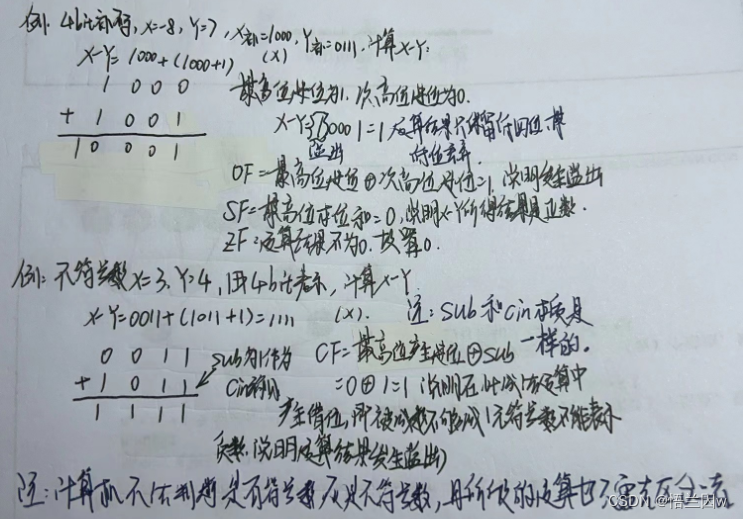 例: 4bit补码, x=-8, Y=7, X补=1000, Y补=0111, 计算X-Y:
X-Y=1000+(1000+1) (X)
1 0 0 0
+ 1 0 0 1
1 0 0 0 1
最高位进位为1. 次高位进位为0.
X-Y=10001=1 运算结果只保留低四位, 最
溢出 高位丢弃.
OF=最高位进位⊕次高位进位=1, 说明发生溢出
SF=最高位本位和=0, 说明X-Y所得结果是正数.
ZF:运算结果不为0. 故置0.
例: 无符号数X=3, Y=4, 用4bit表示, 计算X-Y
X-Y=0011+(1011+1)=1111 (X).
注: sub和cin本质是
一样的.
0 0 1 1
+ 1 0 1 1
1 1 1 1
sub为1作为
Cin
CF=最高位产生进位⊕sub
=0⊕1=1 说明在此减法运算中
产生借位, 即被减数不够减(无符号数不能表示
负数, 说明运算结果发生溢出)
注: 计算机不
CSDN @悟兰因w